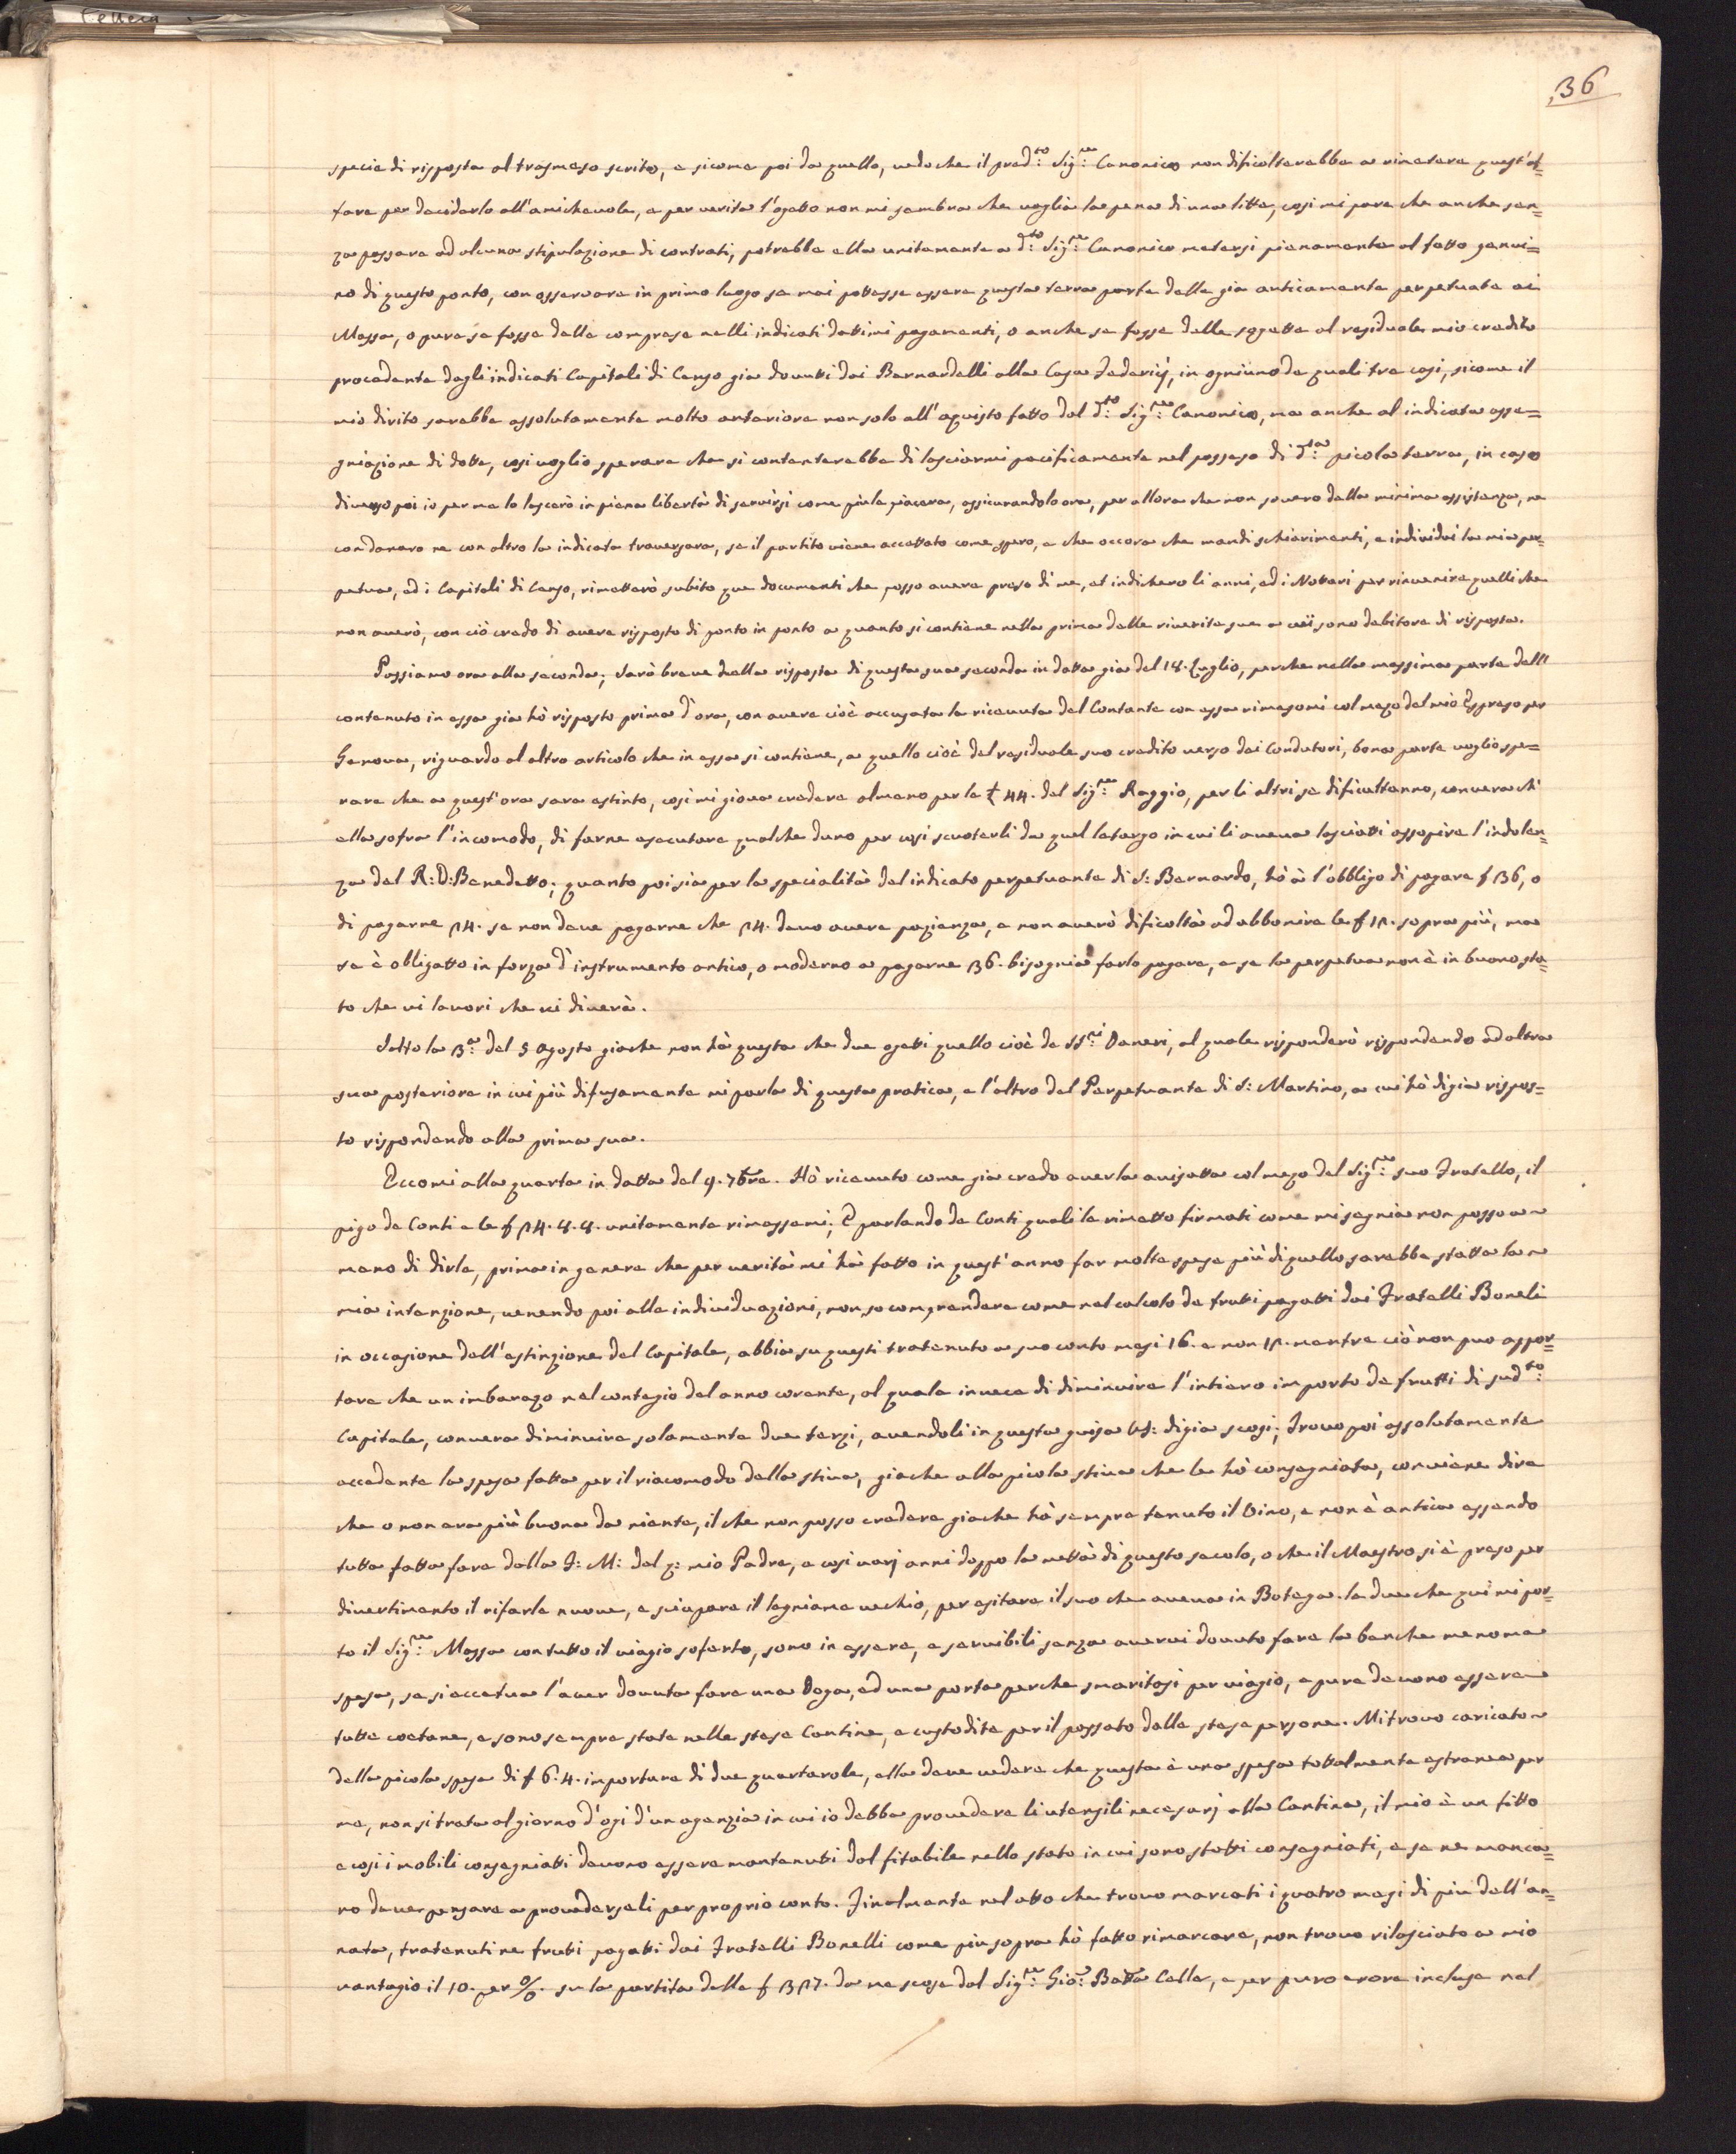 36
specie di risposta al trasmeso scrito, e sicome poi da quello, vedo che il pred.to Sig.re Canonico non dificolterebbe a rimetere quest'af=
fare per deciderlo all'amichevole, e per verita l'ogetto non mi sembra che voglia la pena di una litte, cosi mi pare che anche sen=
za passare ad alcuna stipulazione di contrati, potrebbe ella unitamente a d.to Sig.re Canonico metersi pienamente al fatto genui=
no di questo ponto, con osservare in primo luogo se mai pottesse essere questa terra parte delle gia anticamente perpetuate ai
Massa, o pure se fosse delle comprese nelli indicati dattimi pagamenti, o anche se fosse delle sogette al residuale mio credito
procedente dagli indicati Capitali di Censo gia dovutti dai Bernardelli alla Casa Federicj, in ogniuno de quali tre casi, sicome il
mio dirito sarebbe assolutamente molto anteriore non solo all'aquisto fatto dal d.to Sig.re Canonico, ma anche al indicata asse=
gniazione di dotte, cosi voglio sperare che si contenterebbe di lasciarmi pacificamente nel possesso di d.ta picola terra, in caso
diverso poi io per me lo lascerò in piena libertà di servirsi come più le piacera, assicurandolo ora, per allora che non sovero della minima assistenza, ne
con danaro ne con altro la indicata traversara, se il partito viene accettato come spero, e che occora che mandi schiarimenti, e individui la mia per=
petua, ed i Capitali di Censo, rimetterò subito que documenti che posso avere preso di me, et indichero li anni, ed i Nottari per rinvenire quelli che
non averò, con ciò credo di avere risposto di ponto in ponto a quanto si contiene nella prima delle riverite sue a cui sono debitore di risposta.
Passiamo ora alla seconda; Sarò breve nella risposta di questa sua seconda in datta gia del 18. Luglio, perche nella massima parte dell'
contenuto in essa gia hò risposto prima d'ora, con avere cioè accusata la ricevuta del Contante con essa rimesomi col mezo del mio Espreso per
Genova, riguardo al altro articolo che in essa si contiene, a quello cioè del residuale suo credito verso dei Condutori, bona parte voglio spe=
rare che a quest'ora sara estinto, cosi mi giova credere almeno per le £ 44. del Sig.re Raggio, per li altri se dificultanno, convera ch'
ella sofra l'incomodo, di farne esecutare qualche duno per cosi scuoterli da quel letargo in cui li aveva lasciatti assopire l'indolen=
za del R: D: Benedetto; quanto poi sia per la specialità del indicato perpetuante di S: Bernardo, hò à l'obbligo di pagare f 36, o
di pagarne 24. se non deve pagarne che 24. devo avere pazienza, e non averò dificoltà ad abbonire le f 12. sopra più, ma
se è obligatto in forza d'instrumento antico, o moderno a pagarne 36. bisognia farlo pagare, e se la perpetua non è in buono sta=
to che vi lavori che vi diverà.
Sotto la 3.a del 5 Agosto giache non hà questa che due ogetti quello cioè de SS.ri Daneri, al quale risponderò rispondendo ad altra
sua posteriore in cui più difusamente mi parla di questa pratica, e l'altro del Perpetuante di S: Martino, a cui hò digia rispos=
to rispondendo alla prima sua.
Eccomi alla quarta in datta del 9. 7bre. Hò ricevuto come gia credo averla avisatta col mezo del Sig.re suo Fratello, il
pigo de Conti e le f 24. 8. 8. unitamente rimessemi; E parlando de Conti quali le rimetto firmati come mi segnia non posso a
meno di dirle, prima in genere che per verità mi hà fatto in quest'anno far molte spese più di quello sarebbe statta la
mia intenzione, venendo poi alle individuazioni, non so comprendere come nel calcolo de frutti pagatti dai Fratelli Boneli
in occasione dell'estinzione del Capitale, abbia su questi tratenuto a suo conto mesi 16. e non 12. mentre ciò non puo appor=
tare che un imbarazo nel contegio del anno corente, al quale invece di diminuire l'intiero importo de frutti di sud.to
Capitale, convera diminuire solamente due terzi, avendoli in questa guisa VS: digia scosi; Trovo poi assolutamente
eccedente la spesa fatta per il riacomodo della stiva, giache alla picola stiva che le hò consegniata, conviene dire
che o non era più buona da niente, il che non posso credere giache hà sempre tenuto il Vino, e non è antica essendo
tutta fatta fare dalla F: M: del q: mio Padre, e cosi varj anni doppo la mettà di questo secolo, o che il Maestro si è preso per
divertimento il rifarle nuove, e sciapare il legniame vechio, per esitare il suo che aveva in Botega. le due che qui mi por=
to il Sig.re Massa con tutto il viagio soferto, sono in essere, e servibili senza avervi dovuto fare la benche menoma
spesa, se si eccetua l'aver dovuta fare una Doga, ed una porta perche smaritosi per viagio, e pure devono essere
tutte coetane, e sono sempre state nelle stese Cantine, e custodite per il passato dalle stese persone. Mi trovo caricato
della picola spesa di f 6. 4. importare di due quartarole, ella deve vedere che questa è una spesa tottalmente estranea per
me, non si trata al giorno d'ogi d'un agenzia in cui io debba provedere li utensili necesarj alla Cantina, il mio è un fitto
e cosi i mobili consegniatti devono essere mantenutti dal fitabile nello stato in cui sono statti consegniati, e se ne manca=
no deve pensare a provederseli per proprio conto. Finalmente nel atto che trovo marcati i quatro mesi di più dell'an=
nata, tratenuti ne fruti pagatti dai Fratelli Bonelli come piu sopra hò fatto rimarcare, non trovo rilasciato a mio
vantagio il 10. per %. su la partita delle f 327. da me scose dal Sig.re Gio: Batta Celle, e per puro erore incluse nel